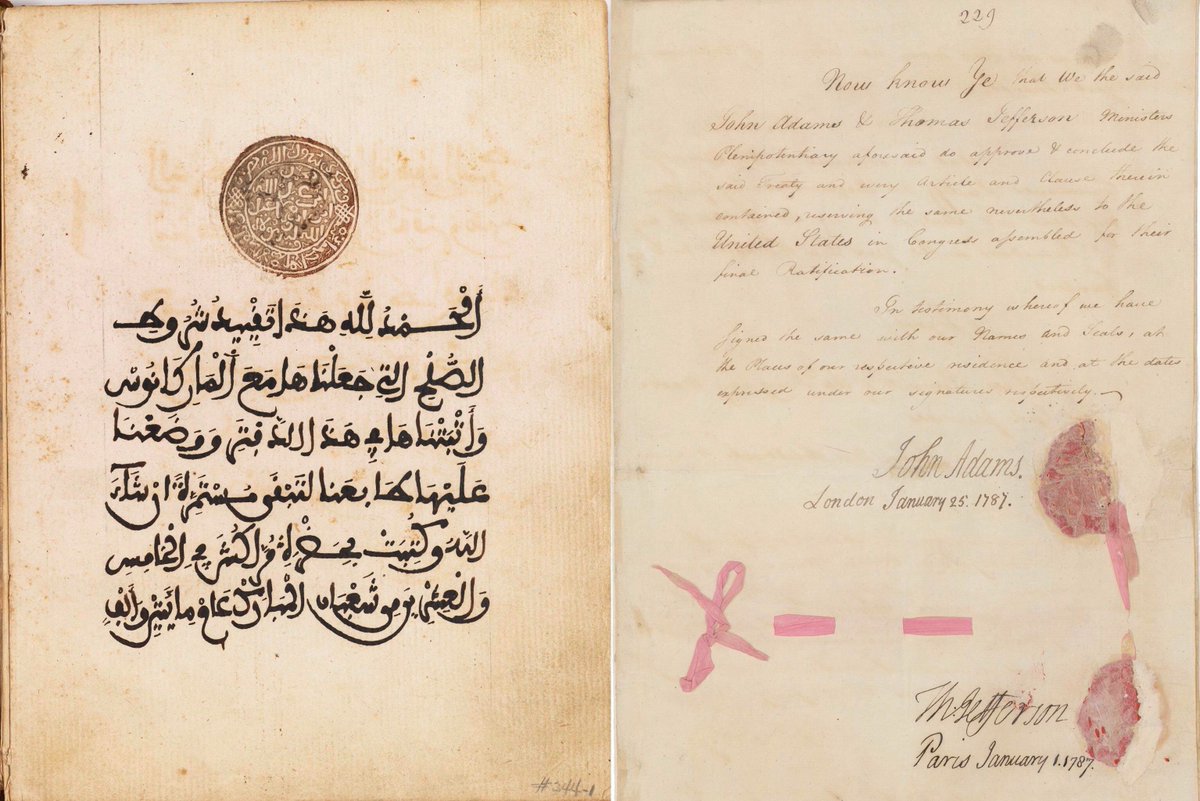 ألحمد لله هذا تقييد شروط
الصُّلح التي جعلناها مَعَ ألماركانوس
وَأثبتناها في هذا الدفتر ووضعنا
عليها طابعنا لتبقى مستمرة إن شآء
الله وكتبت بحضرة مراكش في الخامس
والعشرين من شعبان المبارك عام مائتين وألف
#344-1
229
Now know Ye that We the said
John Adams & Thomas Jefferson Ministers
Plenipotentiary aforesaid do approve & conclude the
said Treaty and every Article and Clause therein
contained, reserving the same nevertheless to the
United States in Congress assembled for their
final Ratification.
In testimony whereof we have
signed the same with our Names and Seals, at
the Places of our respective residence and at the dates
expressed under our signatures respectively.
John Adams.
London January 25. 1787.
Th: Jefferson
Paris January 1. 1787.